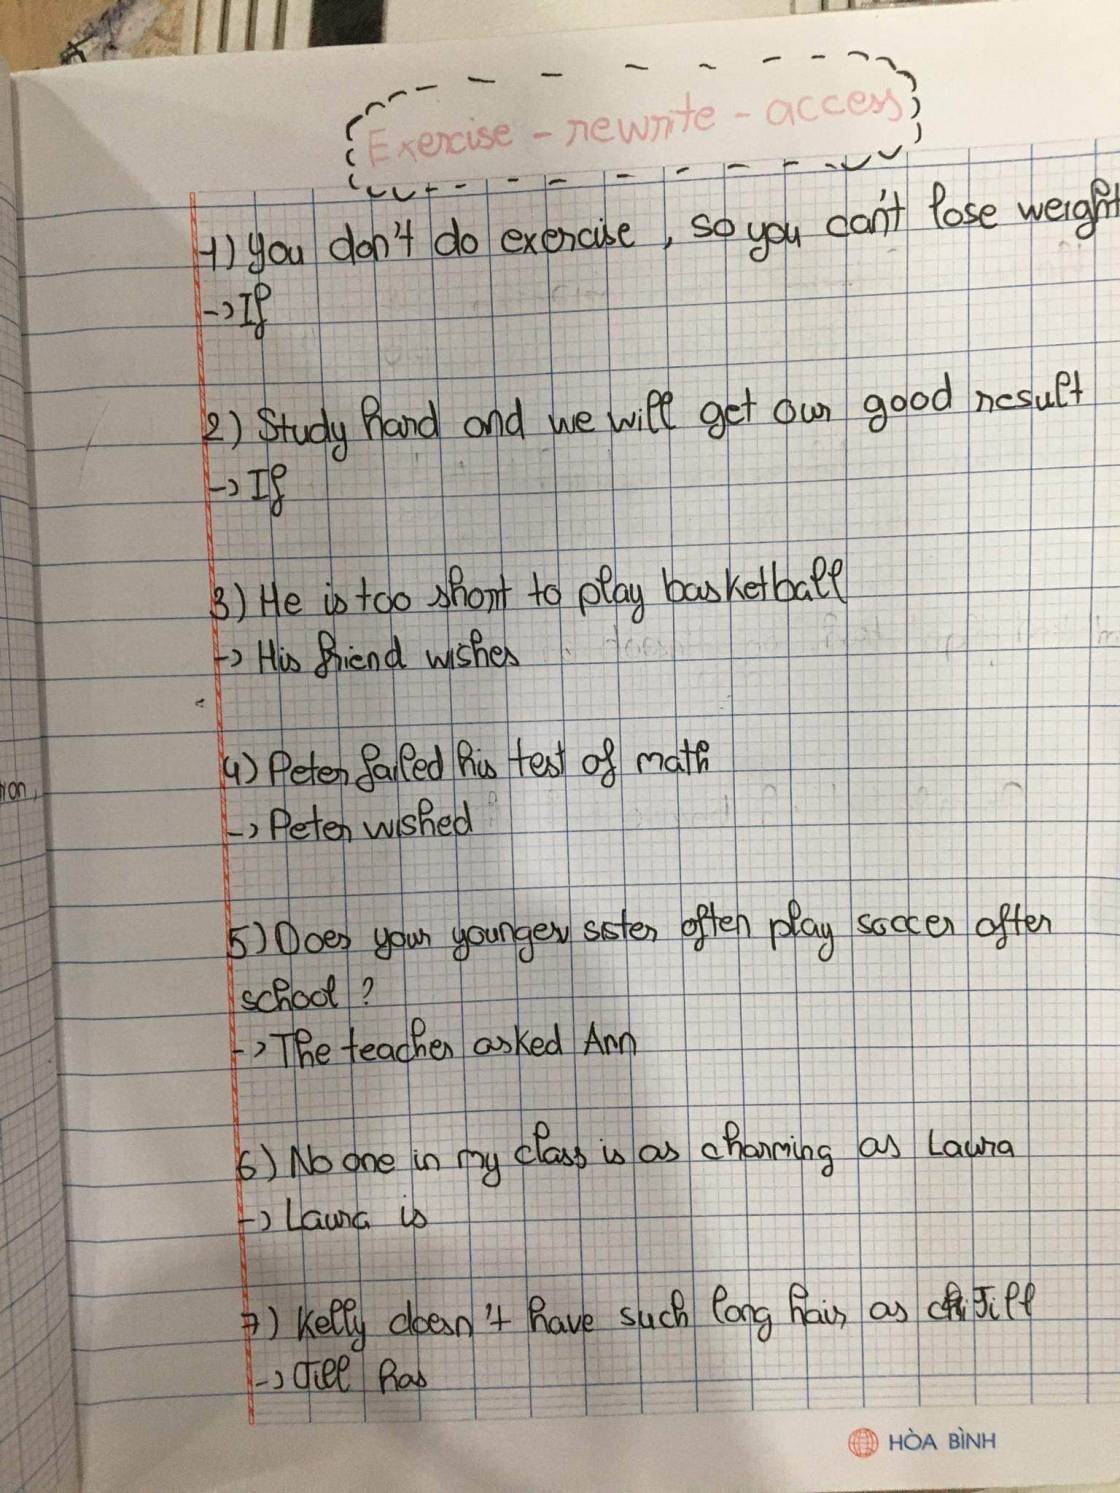 Exercise - rewrite - access
1) you don't do exercise, so you can't lose weight
-> If
2) Study hard and we will get our good result
-> If
3) He is too short to play basketball
-> His friend wishes
4) Peter failed his test of math
-> Peter wished
ion,
5) Does your younger sister often play soccer after
school ?
-> The teacher asked Ann
6) No one in my class is as charming as Laura
-> Laura is
7) Kelly doesn't have such long hair as Jill
-> Jill has
HÒA BÌNH